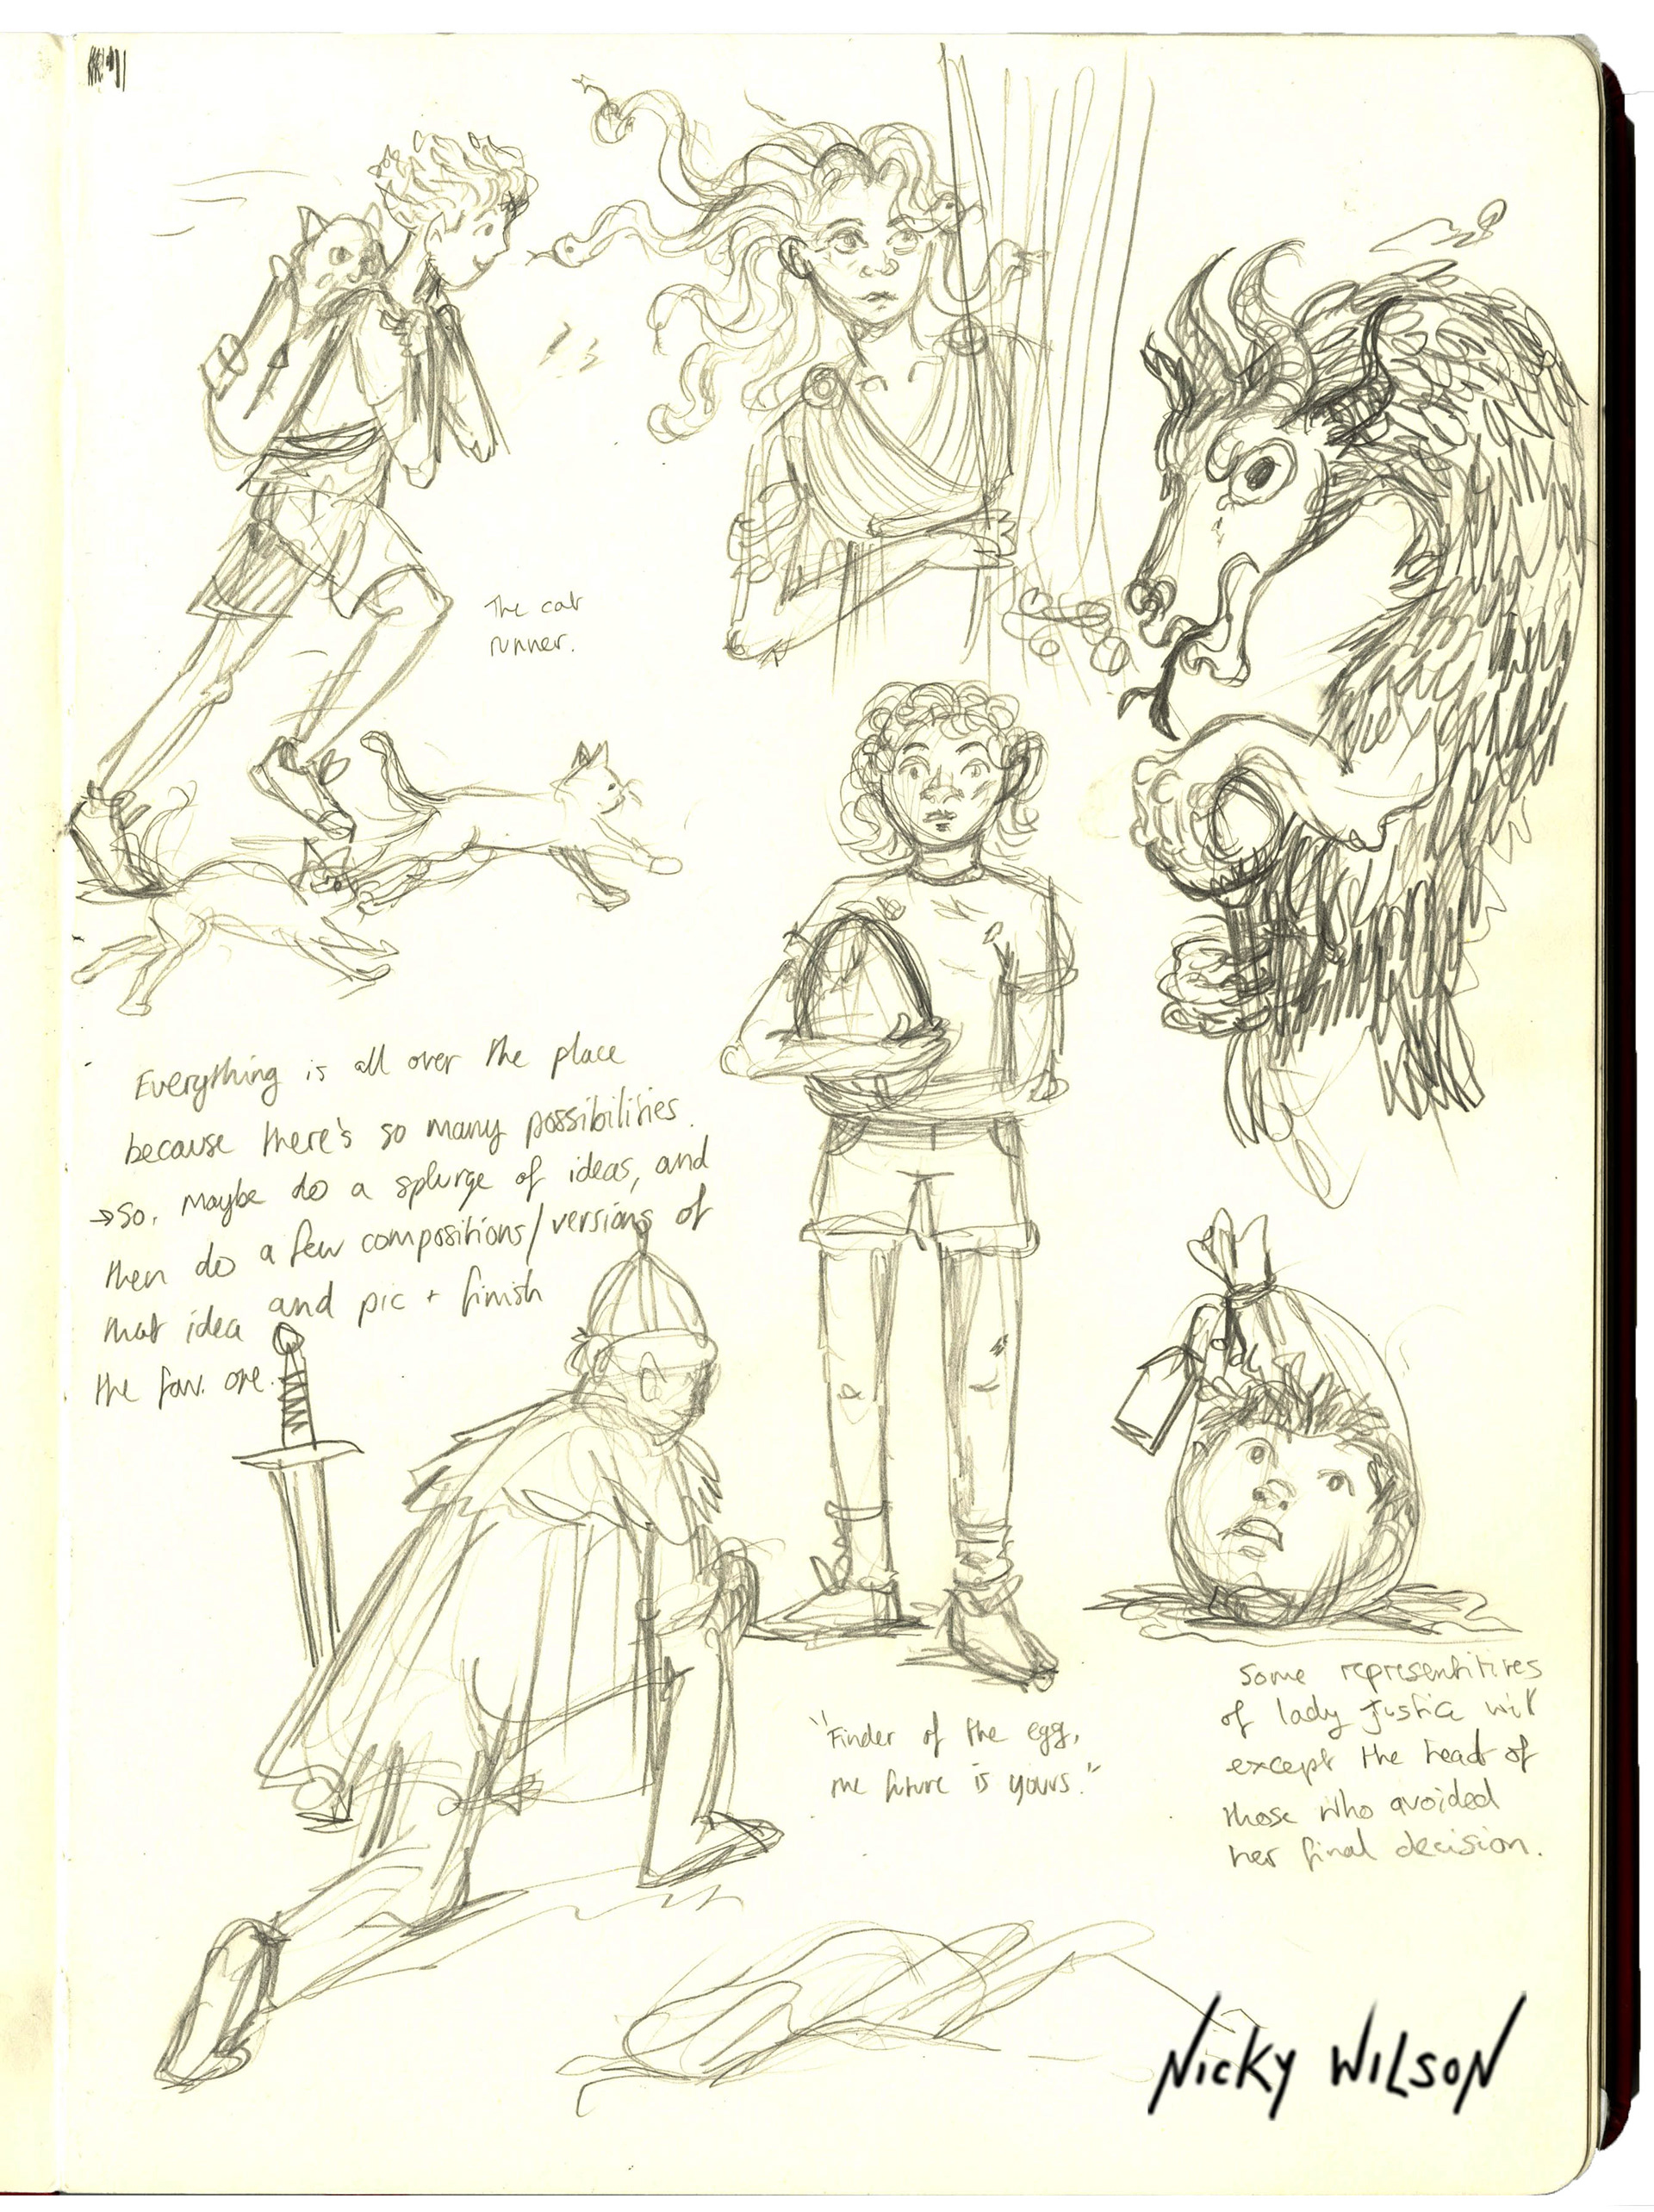 The cat
runner.
Everything is all over the place
because there's so many possibilities.
→ So, maybe do a splurge of ideas, and
then do a few compositions/versions of
that idea and pic + finish
the fav. one.
"Finder of the egg,
the future is yours."
Some representitives
of lady justice will
except the head of
those who avoided
her final decision.
NICKY WILSON